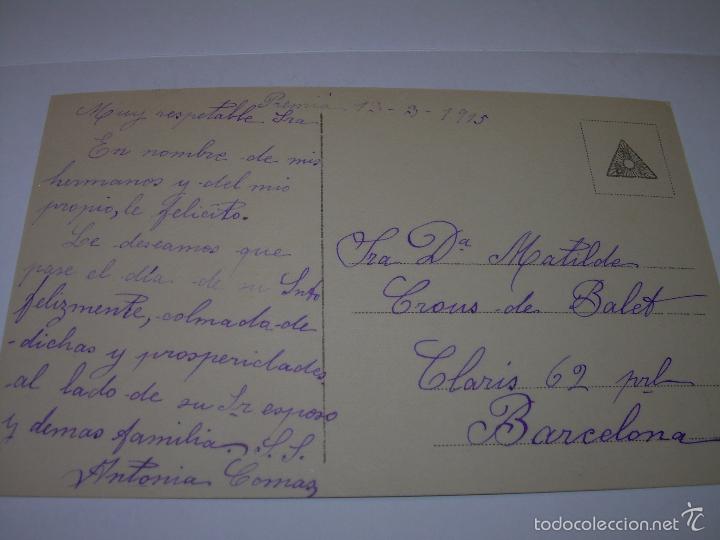 Premia 13-3-1915
Muy respetable Sra
En nombre de mis
hermanos y del mio
propio, le felicito.
Le deseamos que
pase el dia de su Snto
felizmente, colmada de
dichas y prosperidades
al lado de su Sr esposo
y demas familia. S.S.
Antonia Comas
Sra Dª Matilde
Crous de Balet
Claris 62 pral
Barcelona
todocoleccion.net